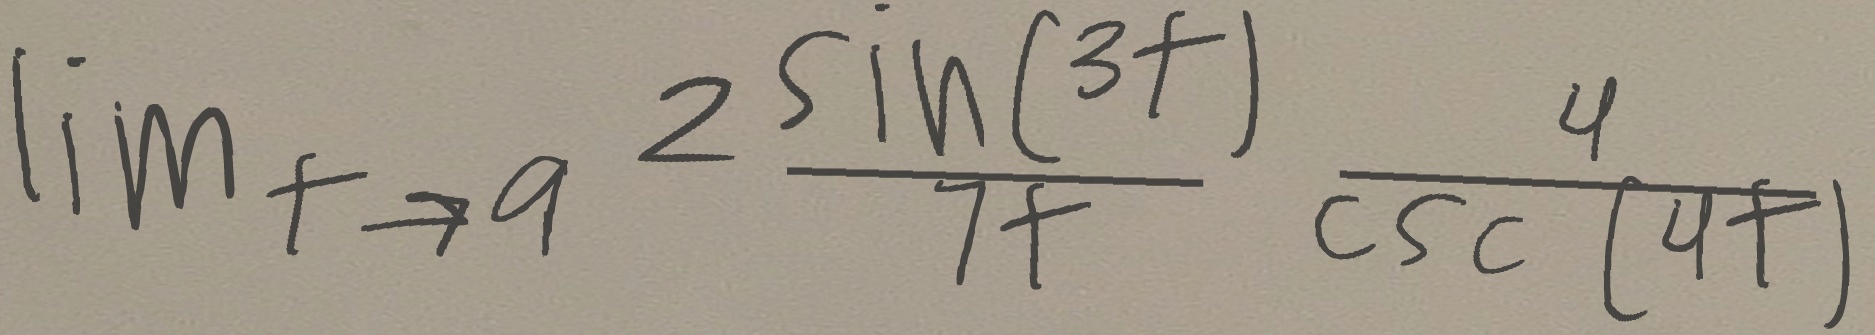 \lim_{t \to 9} 2 \frac{\sin(3t)}{7t} \frac{4}{\csc(4t)}